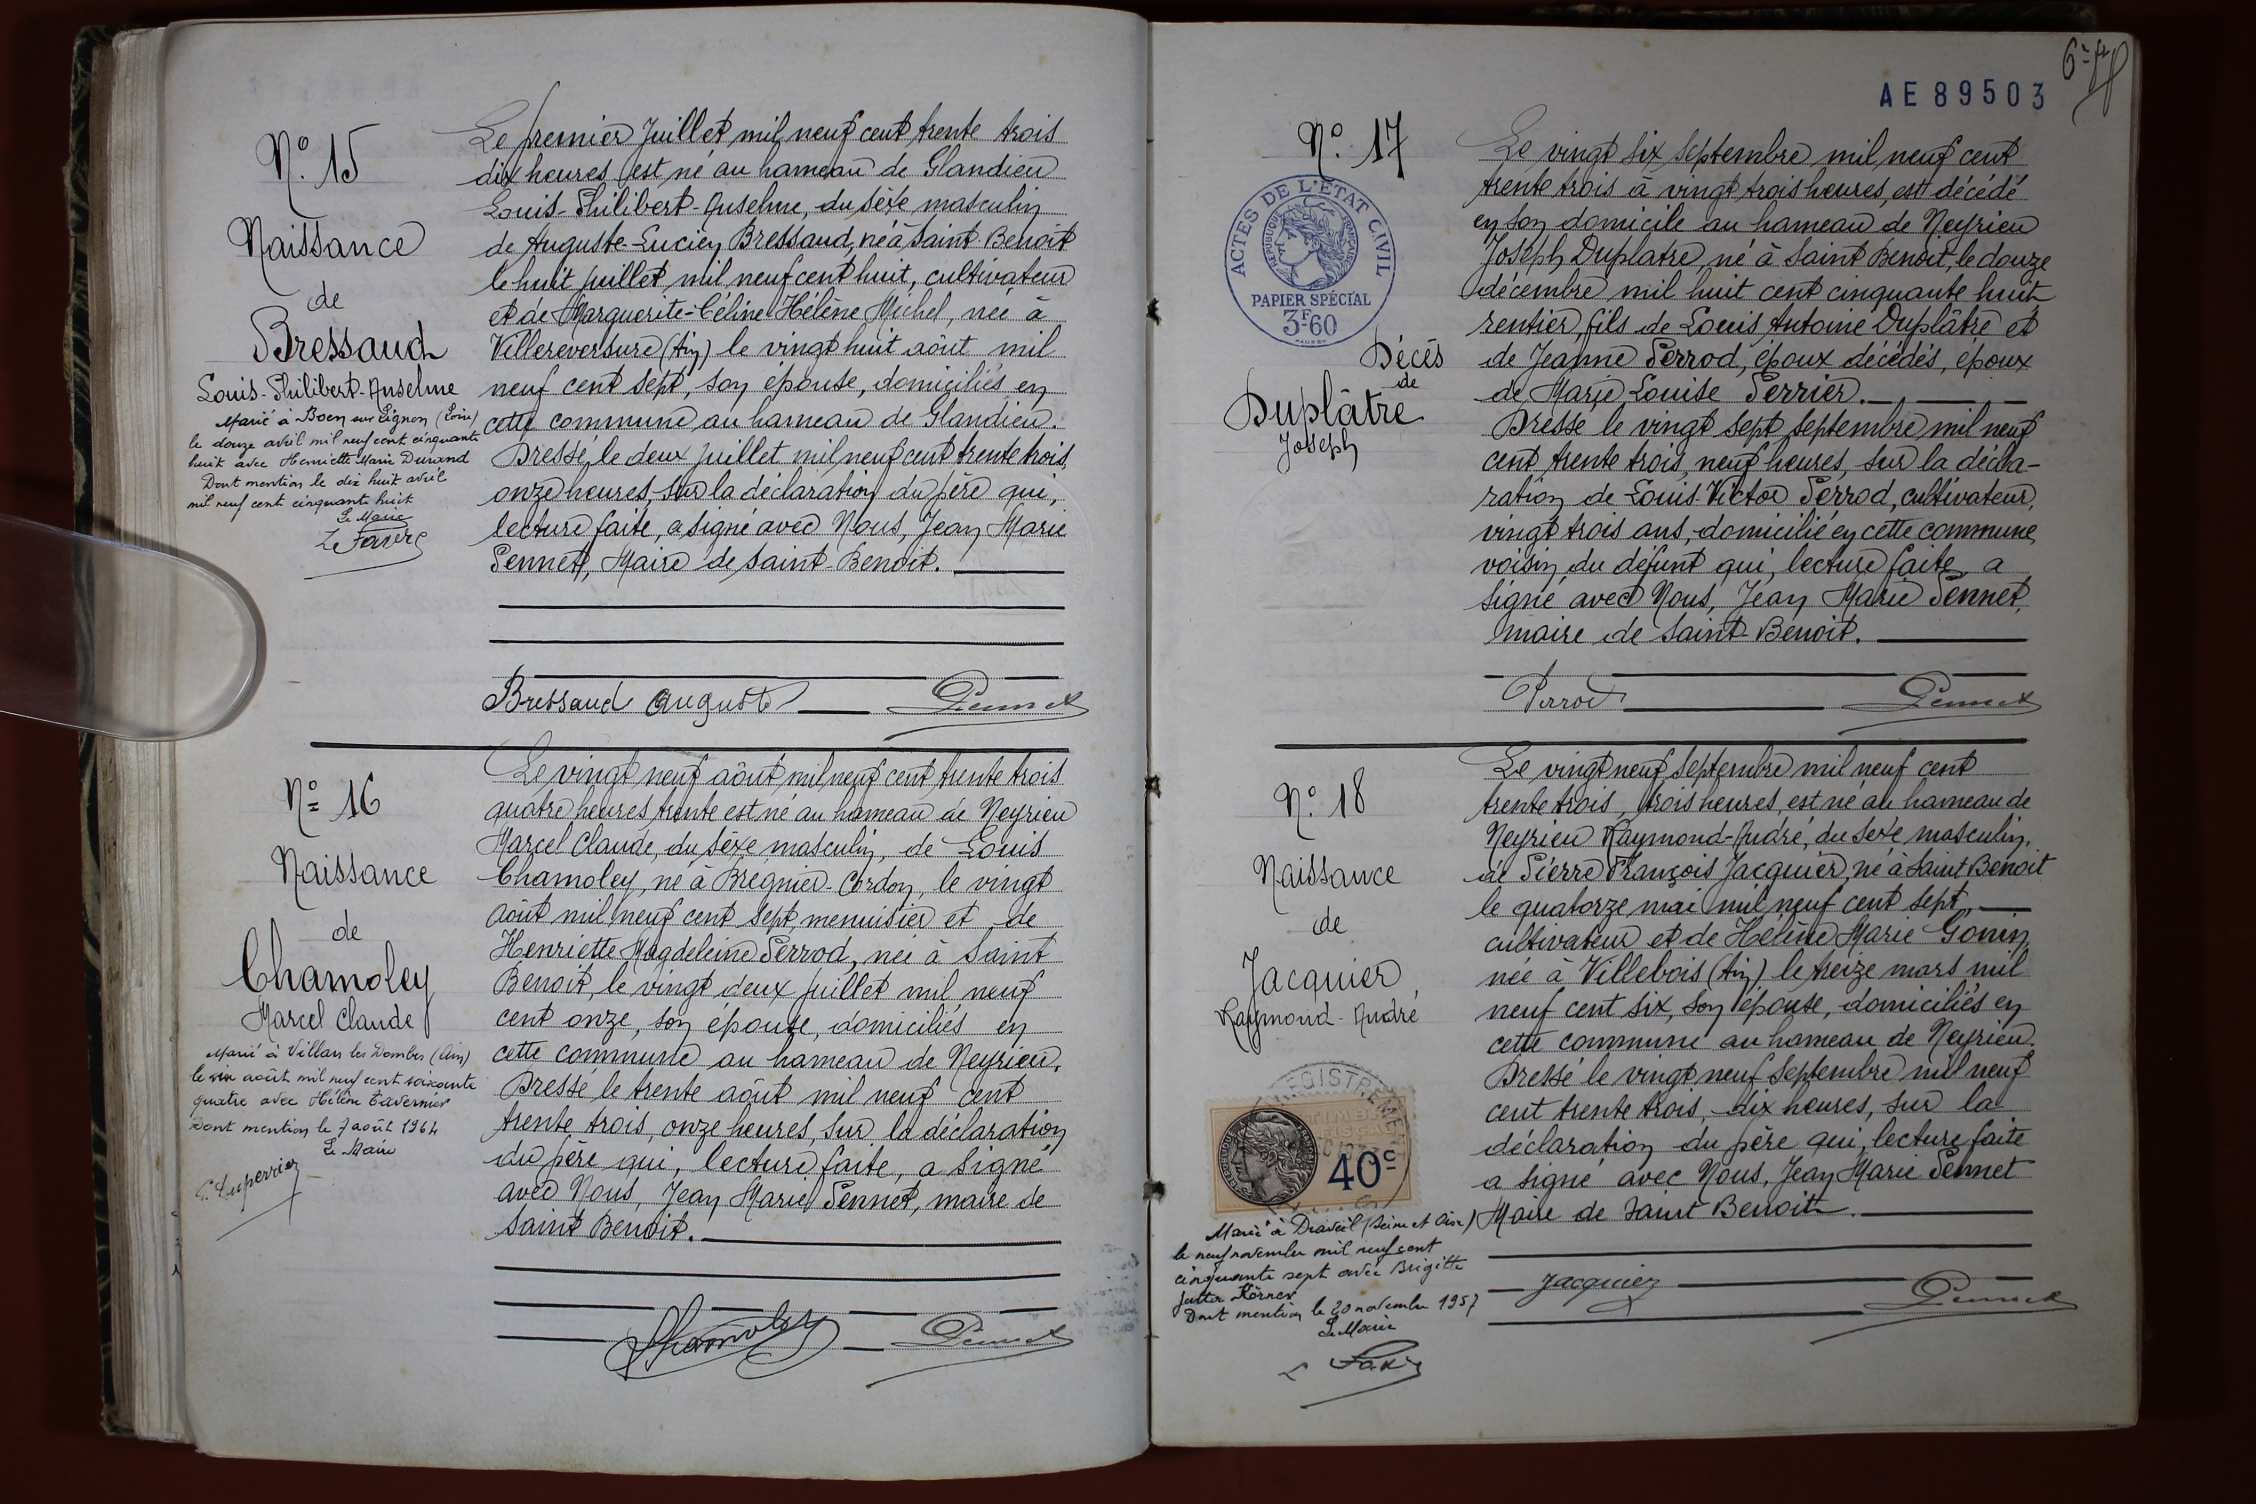 N° 15
Naissance
de
Bressaud
Louis-Philibert-Anselme
Marié à Boen sur Lignon (Loire)
le douze avril mil neuf cent cinquante
huit avec Henriette Marie Durand
Dont mention le dix huit avril
mil neuf cent cinquante huit
Le Maire
L Favre
Le premier Juillet mil neuf cent trente trois
dix heures est né au hameau de Glandieu
Louis-Philibert-Anselme, du sèxe masculin
de Auguste-Lucien Bressaud, né à Saint-Benoit
le huit juillet mil neuf cent huit, cultivateur
et de Marguerite-Céline Hélène Michel, née à
Villereversure (Ain) le vingt huit aôut mil
neuf cent sept, son épouse, domiciliés en
cette commune au hameau de Glandieu.
Dressé, le deux juillet mil neuf cent trente trois,
onze heures, sur la déclaration du père qui,
lecture faite, a signé avec Nous, Jean Marie
Pennet, Maire de Saint-Benoit.
Bressaud August Pennet
N° 16
Naissance
de
Chamoley
Marcel Claude
Marié à Villars les Dombes (Ain)
le six août mil neuf cent soixante
quatre avec Hélène Tavernier
Dont mention le 7 août 1964
Le Maire
Le vingt neuf aôut mil neuf cent trente trois
quatre heures trente est né au hameau de Neyrieu
Marcel Claude, du sèxe masculin, de Louis
Chamoley, né à Brégnier-Cordon, le vingt
aôut mil neuf cent sept, menuisier et de
Henriette Magdeleine Perrod, née à Saint
Benoit, le vingt deux juillet mil neuf
cent onze, son épouse, domiciliés en
cette commune au hameau de Neyrieu.
Dressé le trente aôut mil neuf cent
trente trois, onze heures, sur la déclaration
du père qui, lecture faite, a signé
avec Nous, Jean Marie Pennet, maire de
Saint Benoit.
Chamoley Pennet
AE 89503
N° 17
ACTES DE L'ÉTAT CIVIL
RÉPUBLIQUE FRANÇAISE
PAPIER SPÉCIAL
3F60
Décès
de
Duplâtre
Joseph
Le vingt six septembre mil neuf cent
trente trois à vingt trois heures, est décédé
en son domicile au hameau de Neyrieu
Joseph Duplatre, né à Saint Benoit, le douze
décembre mil huit cent cinquante huit
rentier, fils de Louis Antoine Duplâtre et
de Jeanne Perrod, époux décédés, époux
de Marie Louise Perrier.
Dressé le vingt sept septembre mil neuf
cent trente trois, neuf heures, sur la décla-
ration de Louis-Victor Perrod, cultivateur,
vingt trois ans, domicilié en cette commune,
voisin du défunt qui, lecture faite, a
signé avec Nous, Jean Marie Pennet,
maire de Saint-Benoit.
Perrod Pennet
N° 18
Naissance
de
Jacquier
Raymond-André
40c
Marié à Draveil (Seine et Oise)
le neuf novembre mil neuf cent
cinquante sept avec Brigitte
Körner
Dont mention le 20 novembre 1957
Le Maire
Le vingt neuf septembre mil neuf cent
trente trois, trois heures, est né au hameau de
Neyrieu Raymond-André, du sexe masculin,
de Pierre François Jacquier, né à Saint Benoit
le quatorze mai mil neuf cent sept,
cultivateur et de Hélène Marie Gonin,
née à Villebois (Ain) le treize mars mil
neuf cent six, son épouse, domiciliés en
cette commune au hameau de Neyrieu.
Dressé le vingt neuf Septembre mil neuf
cent trente trois, dix heures, sur la
déclaration du père qui, lecture faite
a signé avec Nous, Jean Marie Pennet
Maire de Saint Benoit.
Jacquier Pennet